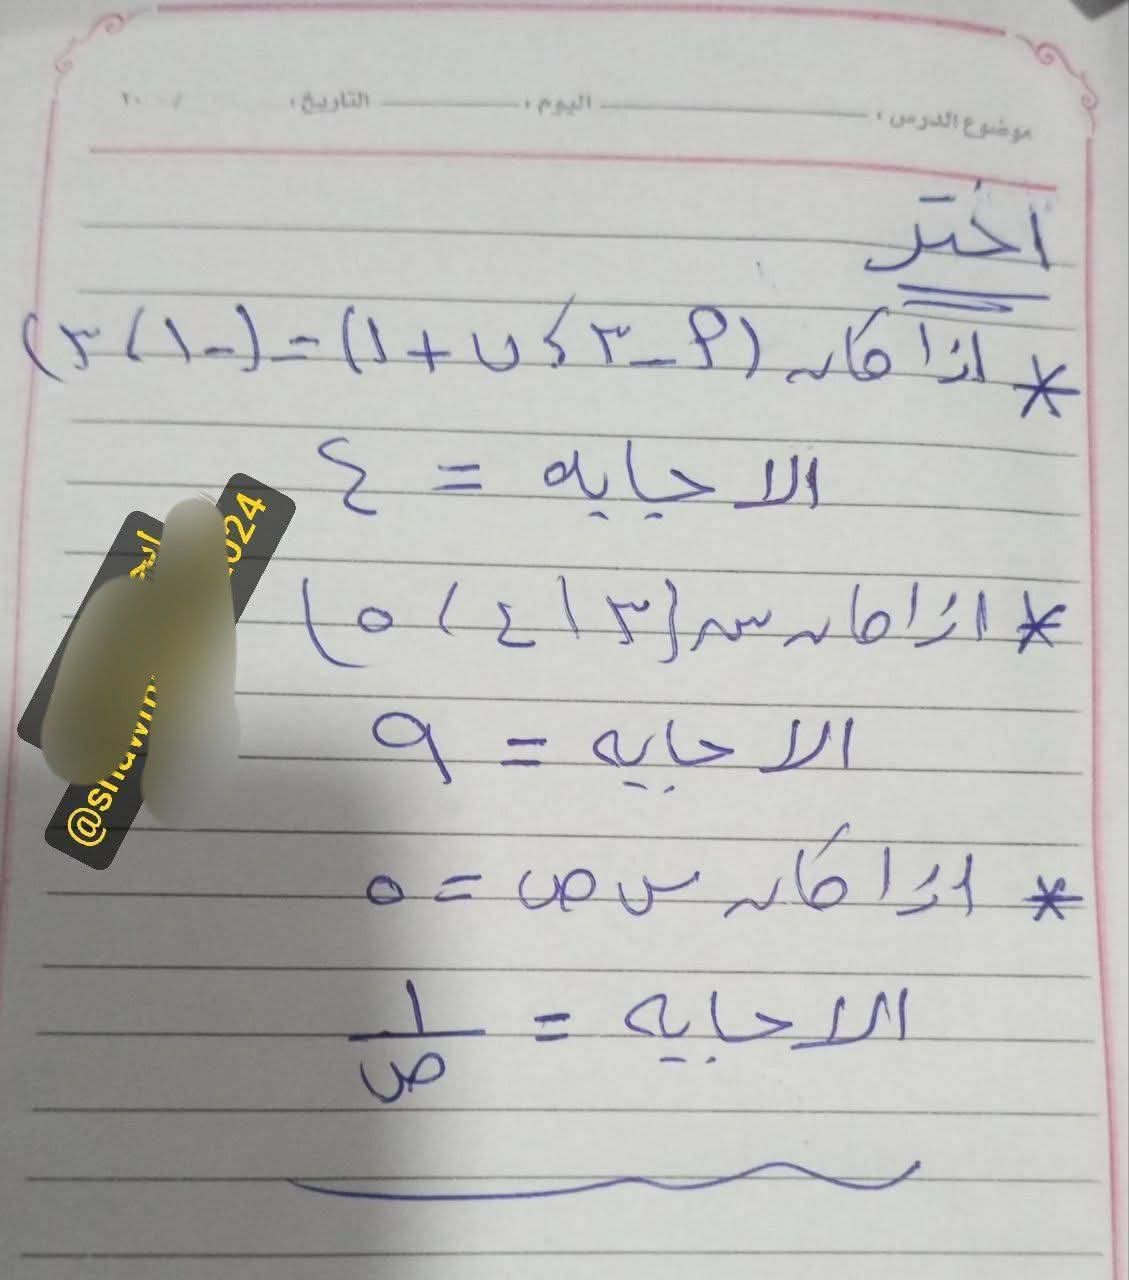 موضوع الدرس : اليوم : التاريخ : / ٢٠
اختر
* اذا كان (٩ – ٣ ، ب + ١) = (– ١ ، ٣)
الاجابه = ٤
* اذا كان س {٣ ، ٤ ، ٥}
الاجابه = ٩
* اذا كان س ص = ٥
الاجابه = ١/ص
024
@shawm